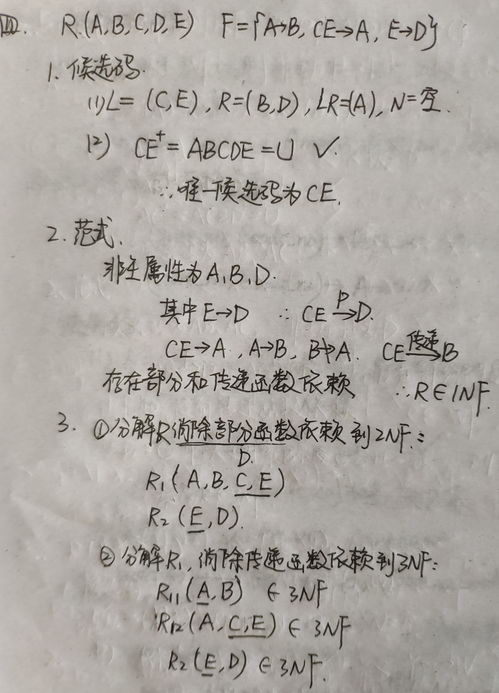 四. R(A,B,C,D,E) F={A→B, CE→A, E→D}
1. 候选码.
(1) L=(C,E), R=(B,D), LR=(A), N=空.
(2) CE⁺=ABCDE=U ✓.
∴唯一候选码为CE.
2. 范式.
非主属性为A,B,D.
其中E→D ∴ CE -P→ D.
CE→A, A→B, B↛A. CE -传递→ B
存在部分和传递函数依赖 ∴R∈1NF.
3. ①分解R消除部分函数依赖到2NF.:
D.
R₁(A,B,C,E)
R₂(E,D).
②分解R₁,消除传递函数依赖到3NF:
R₁₁(A,B) ∈3NF
R₁₂(A,C,E) ∈3NF
R₂(E,D) ∈3NF.